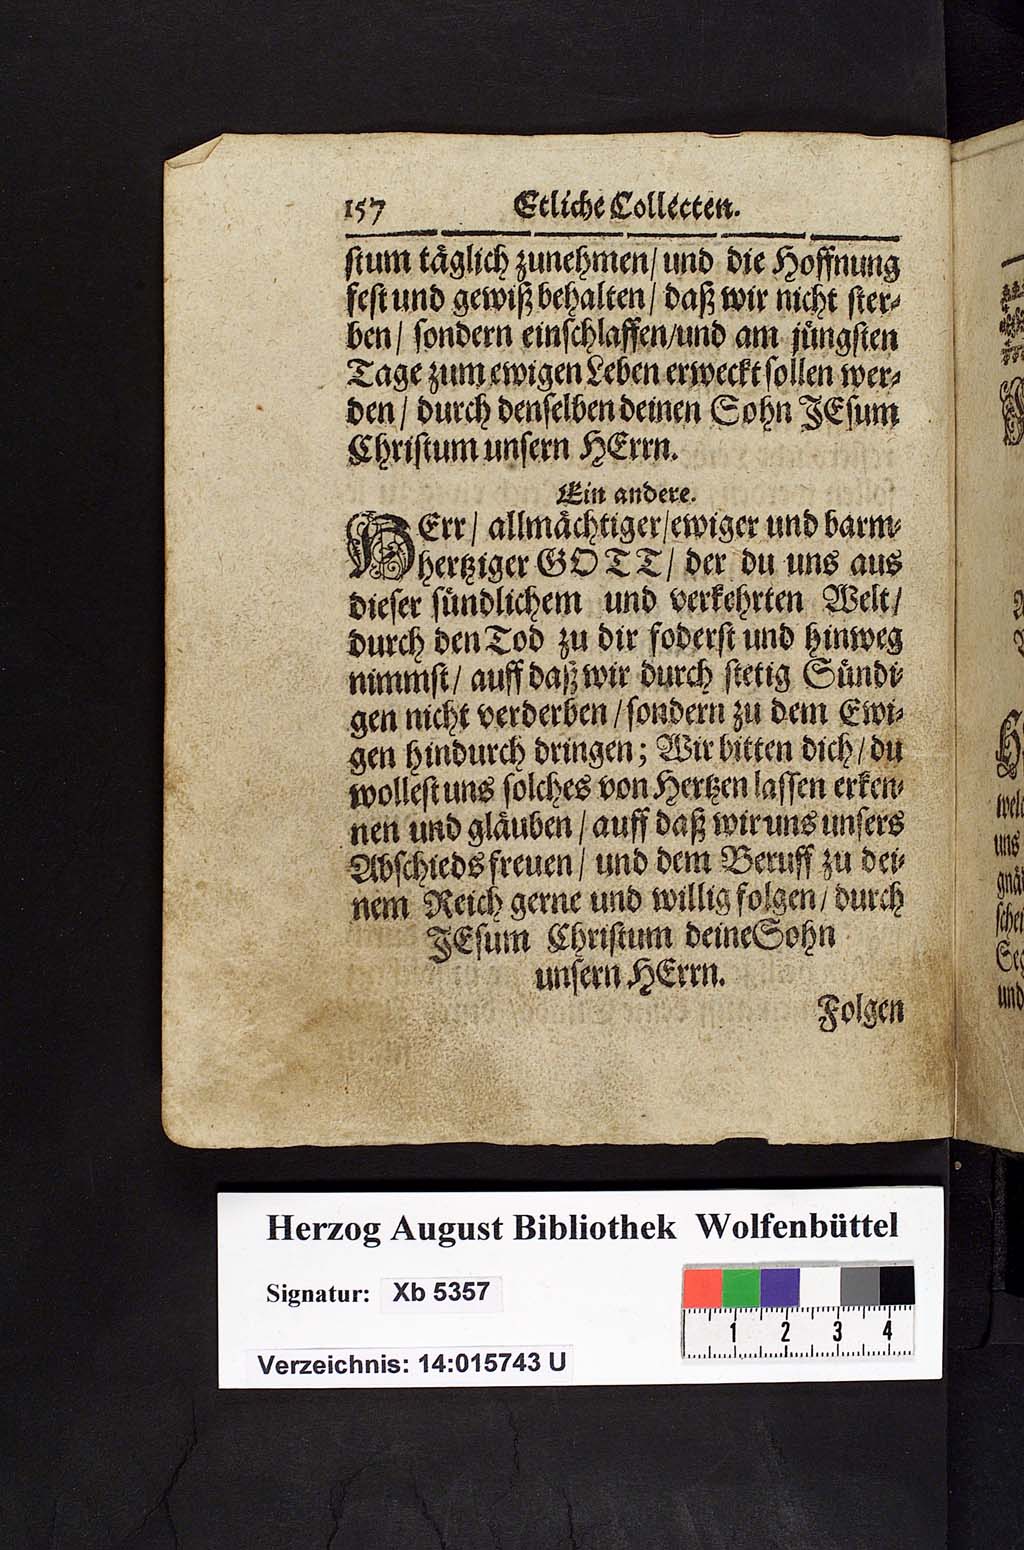 157 Etliche Collecten.
stum täglich zunehmen/ und die Hoffnung
fest und gewiß behalten/ daß wir nicht ster-
ben/ sondern einschlaffen/und am jüngsten
Tage zum ewigen Leben erweckt sollen wer-
den/ durch denselben deinen Sohn JEsum
Christum unsern HErrn.
Ein andere.
HErr/ allmächtiger/ewiger und barm-
hertziger GOTT/ der du uns aus
dieser sündlichem und verkehrten Welt/
durch den Tod zu dir foderst und hinweg
nimmst/ auff daß wir durch stetig Sündi-
gen nicht verderben/sondern zu dem Ewi-
gen hindurch dringen; Wir bitten dich/du
wollest uns solches von Hertzen lassen erken-
nen und gläuben/auff daß wir uns unsers
Abschieds freuen/ und dem Beruff zu dei-
nem Reich gerne und willig folgen/durch
JEsum Christum deine Sohn
unsern HErrn.
Folgen
Herzog August Bibliothek Wolfenbüttel
Signatur: Xb 5357
1 2 3 4
Verzeichnis: 14:015743 U